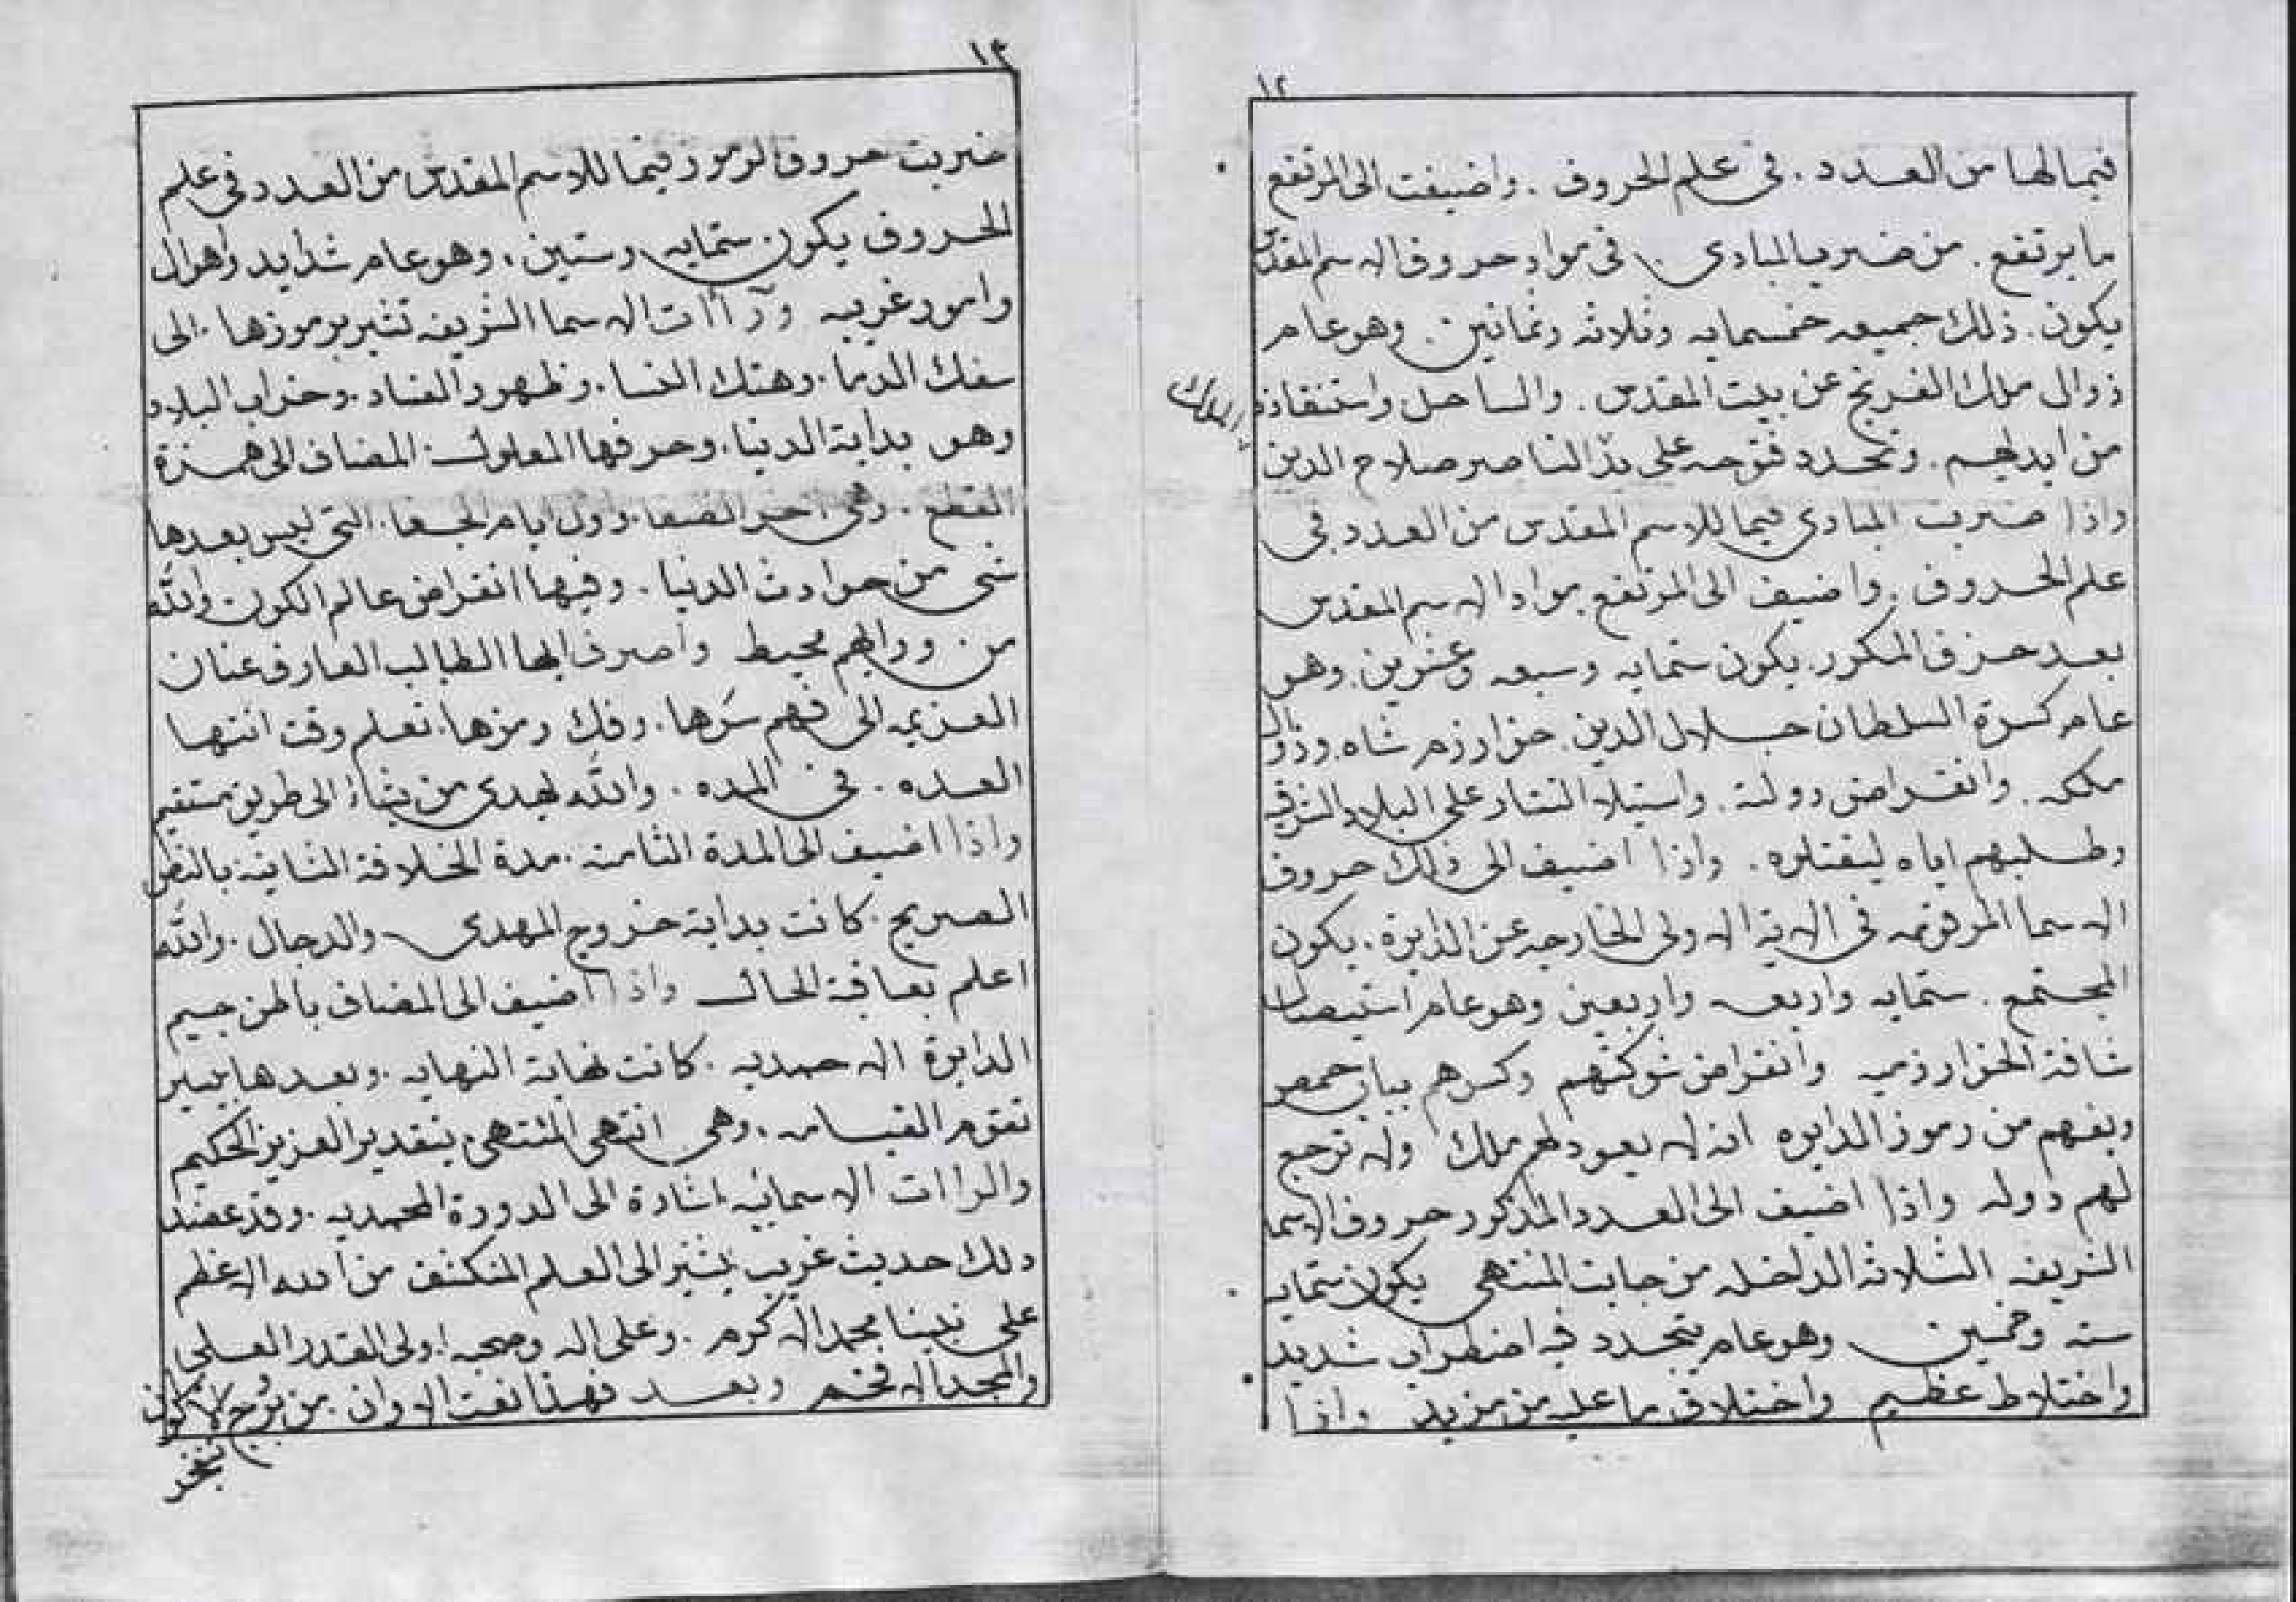 ١٢
فيما لها من العدد . في علم الحروف . واضيفت الى المرتفع
ما يرتفع . من ضرب المبادى . في مواد حروف الاسم المقدس
يكون . ذلك جميعه خمسمايه وثلاثه وثمانين . وهو عام
زوال ملك الفرنج عن بيت المقدس . والساحل واستنقاذه
من ايديهم . وتجدد فتوحه على يد الناصر صلاح الدين
الملك
واذا ضربت المبادى فيما للاسم المقدس من العدد في
علم الحروف . واضيف الى المرتفع مواد الاسم المقدس
بعد حزف المكرر . يكون ستمايه وسبعه وعشرين . وهو
عام كسرة السلطان جلال الدين خوارزم شاه . وزوال
ملكه . وانقراض دولته . واستيلاد التتار على البلاد الشرقيه
وطلبهم اياه ليقتلوه . واذا اضيف الى ذلك حروف
الاسما المرقومه في الاية الاولى الخارجه عن الدايرة . يكون
المجتمع . ستمايه واربعه واربعين وهو عام استيصال
شافة الخوارزميه وانقراض شوكتهم وكسرهم بباب حمص
ويفهم من رموز الدايره انه لا يعود لهم ملك ولا ترجع
لهم دوله واذا اضيف الى العدد المذكور حروف الاسما
الشريفه الثلاثه الداخله من جانب المنتهى يكون ستمايه
سته وخمسين وهو عام يتجدد فيه اضطراب شديد
واختلاط عظيم واختلاف ما عليه من مزيد واذا
١٣
ضربت حروف الرموز فيما للاسم المقدس من العدد في علم
الحروف يكون . ستمايه وستين . وهو عام شدايد واهوال
وامور غريبه ورآات الاسما الشريفه تشير برموزها . الى
سفك الدما . وهتك النسا . وظهور الفساد . وخراب البلاد
وهو بداية الدنيا . وحرفها المعلول . المضاف الى همزة
القطع . وهي اخر الصفا . واول ايام الجفا . التي ليس بعدها
شى من حوادث الدنيا . وفيها انقراض عالم الكون والله
من ورايهم محيط واصرف ايها الطالب العارف عنان
العزيمه الى فهم سرها . وفك رمزها . تعلم وقت انتها
العده . في المده . والله يهدى من يشاء الى طريق مستقيم
واذا اضيف الى المدة الثامنه . مدة الخلافة الثانية بالنص
الصريح . كانت بداية خروج المهدى والدجال . والله
اعلم بعاقبة الحال واذا اضيف الى المضاف باطن جيم
الدايرة الاحمديه . كانت نهاية النهايه . وبعدها بيسير
تقوم القيامه . وهي انتهى المنتهى بتقدير العزيز الحكيم
والراات الاسمائيه اشارة الى الدورة المحمديه . وقد عضد
ذلك حديث غريب يشير الى العلم المنكشف من الله الاعظم
على نبينا محمد الاكرم . وعلى اله وصحبه اولى القدر العلى
والمجد الافخم وبعد فهذا نعت الاوان . من بروج الاكوان